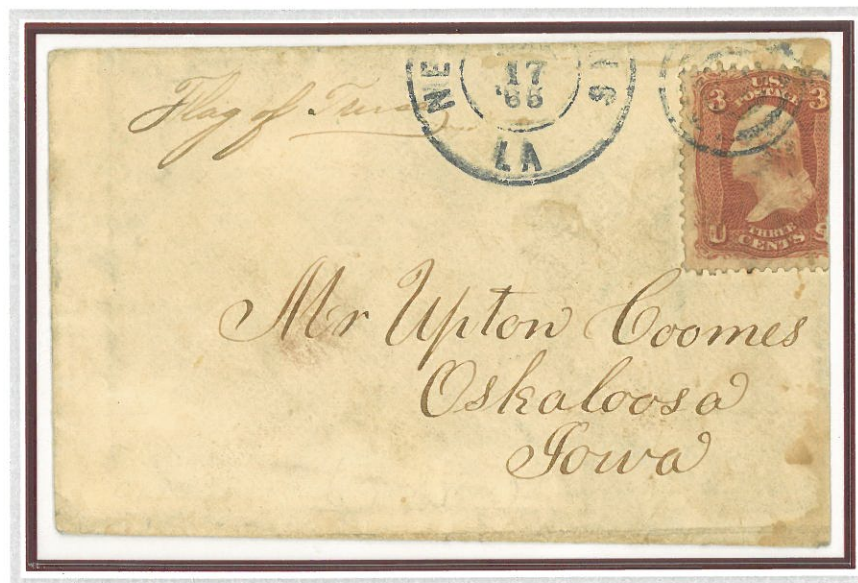 Flag of Truce
NE NS
17
'65
LA
3 U.S. 3
POSTAGE
U THREE S
CENTS
Mr Upton Coomes
Oskaloosa
Iowa